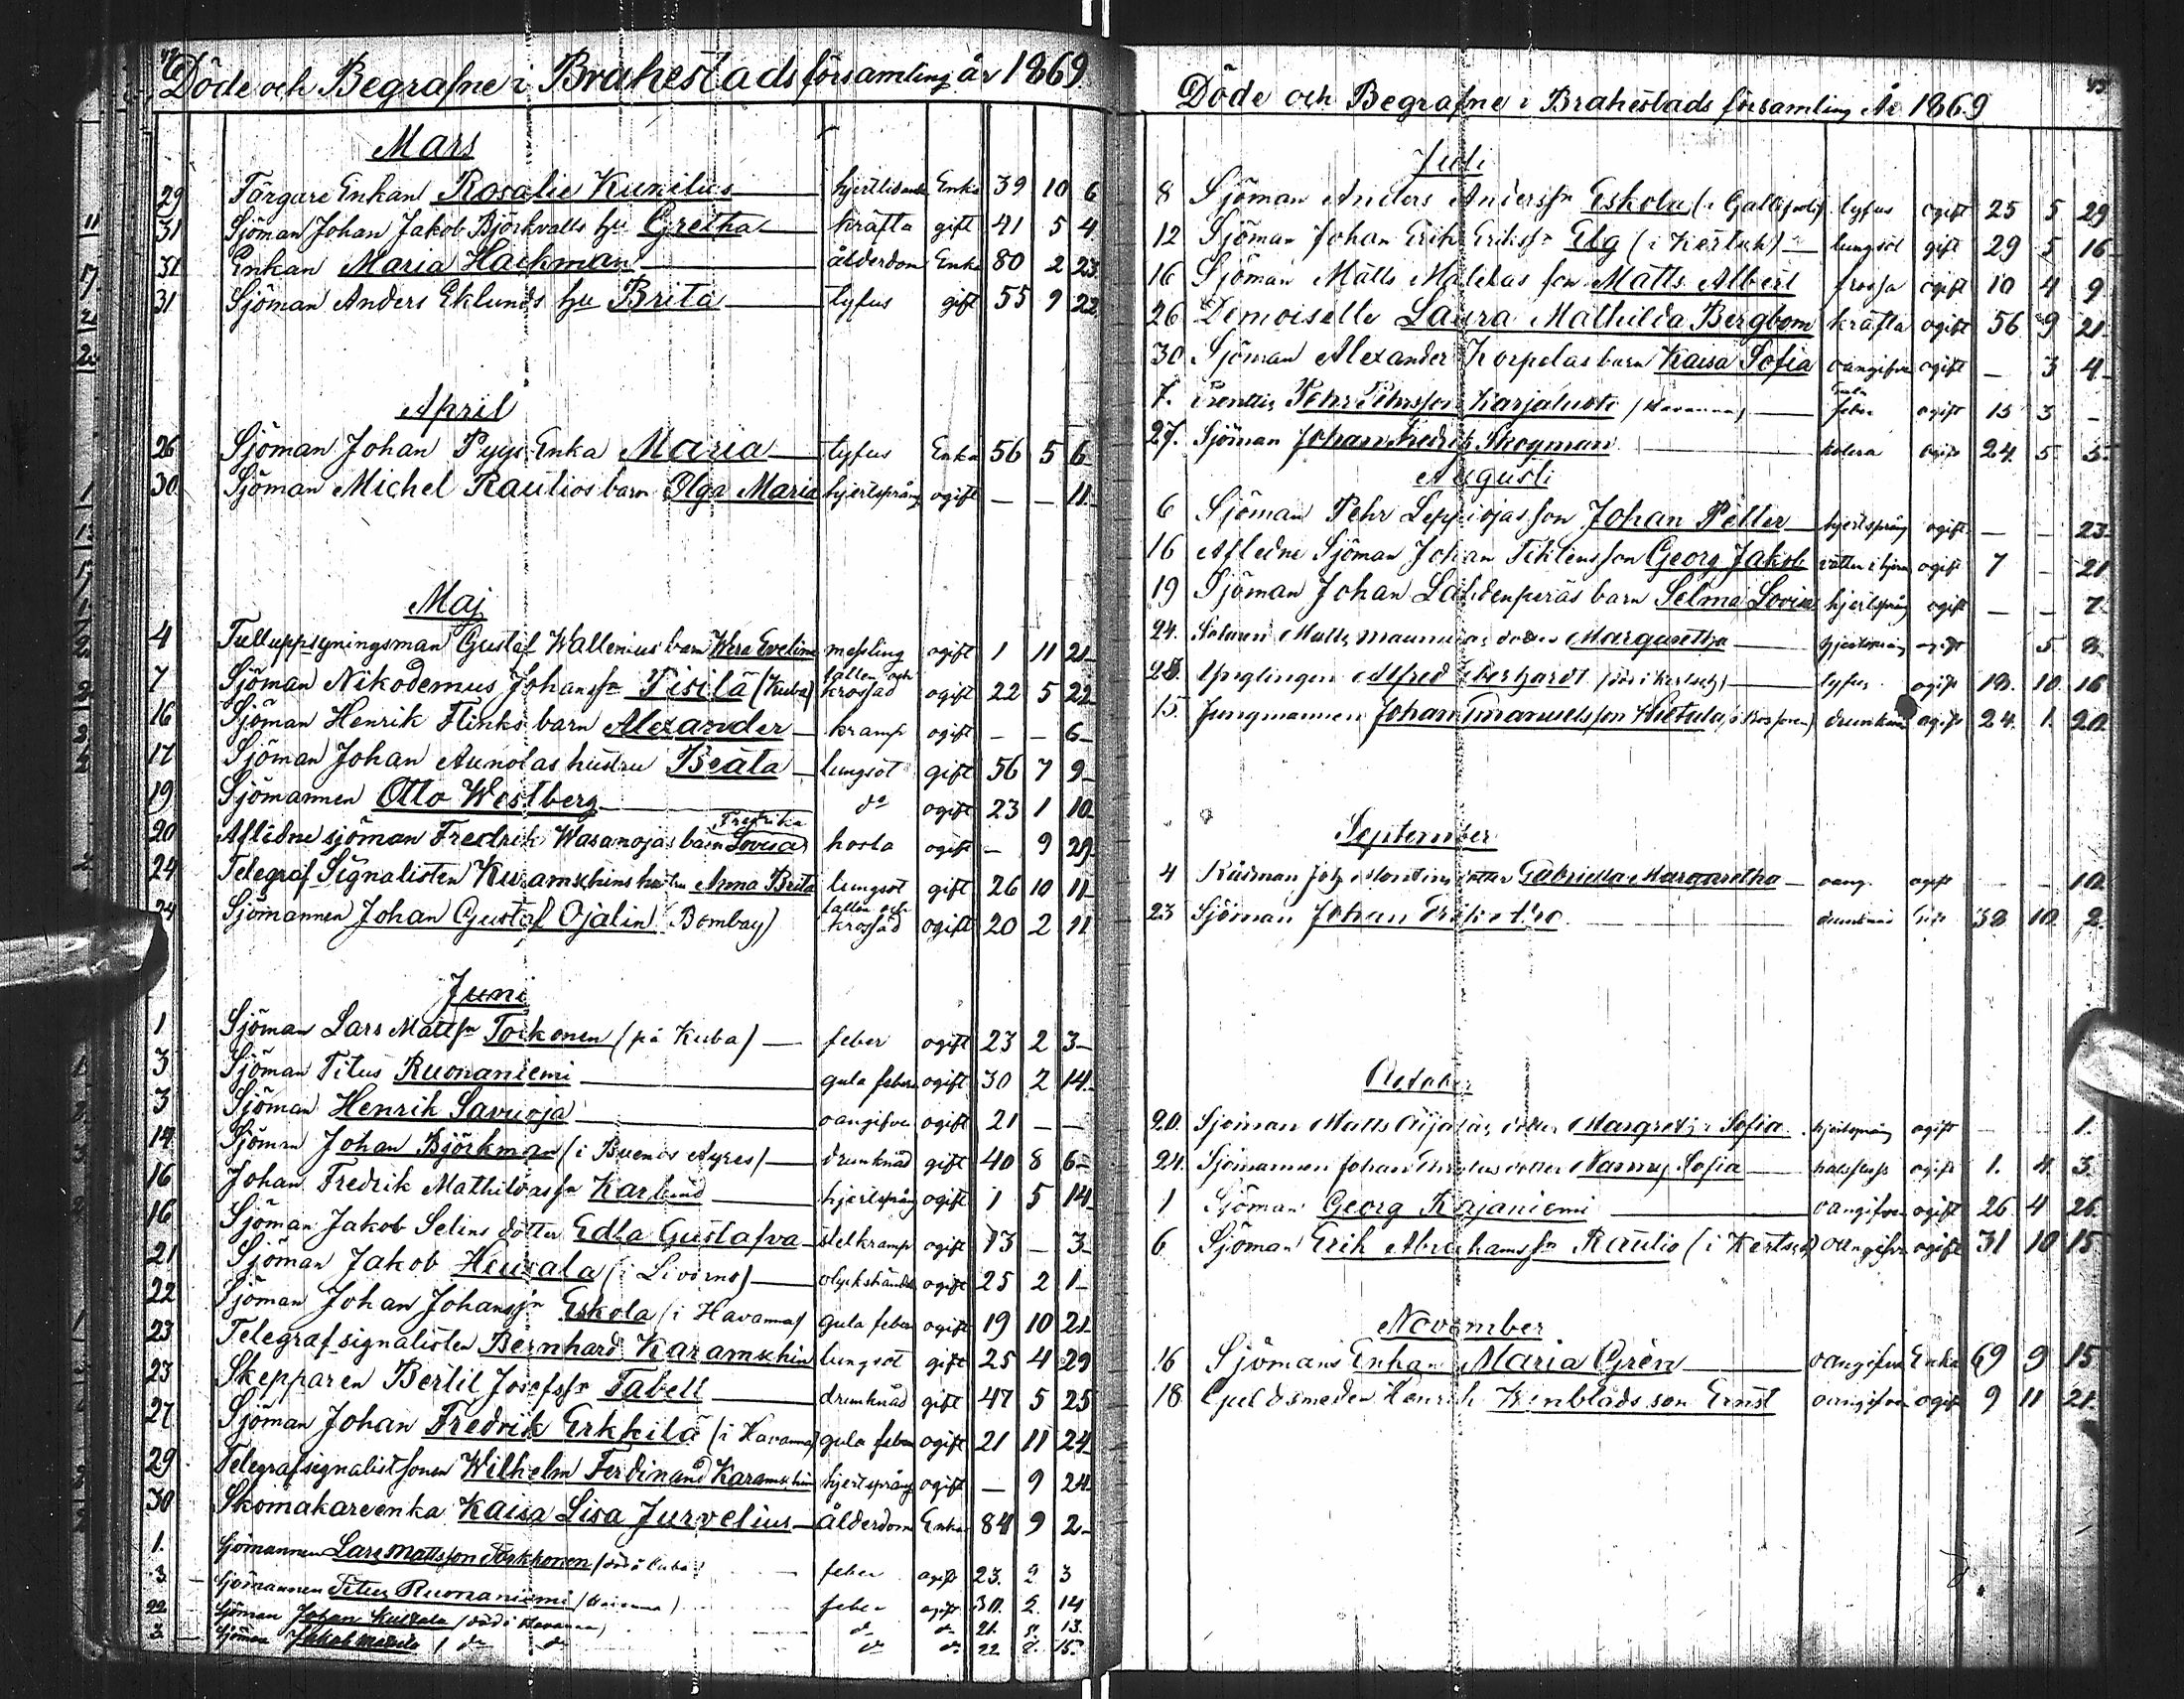 42.
Döde och Begrafne i Brahestads församling år 1869.
Mars
29 Färgare Enkan Rosalie Kunilus hjertlidande Enka 39 10 6
31 Sjöman Johan Jakob Björkvalls hu Gretha kräfta gift 41 5 4
31 Enkan Maria Hackman ålderdom Enka 80 2 23
31 Sjöman Anders Eklunds hu Brita tyfus gift 55 9 22
April
26 Sjöman Johan Pyys Enka Maria tyfus Enka 56 5 6
30 Sjöman Michel Rautios barn Olga Maria hjertsprång ogift — — 11
Maj
4 Tulluppsyningsman Gustaf Wallenius barn Wera Eveline messling ogift 1 11 21
7 Sjöman Nikodemus Johanss Tisilä (Kuba) fallen och krossad ogift 22 5 22
16 Sjöman Henrik Flinks barn Alexander kramp ogift — — 6
17 Sjöman Johan Aunolas hustru Beata lungsot gift 56 7 9
19 Sjömannen Otto Westberg do ogift 23 1 10
20 Aflidne sjöman Fredrik Wasanojas barn Fredrika Lovisa hosta ogift — 9 29
24 Telegraf Signalisten Karamschins hustru Anna Brita lungsot gift 26 10 11
24 Sjömannen Johan Gustaf Ojalin (Bombay) fallen och krossad ogift 20 2 11
Juni
1 Sjöman Lars Mattss Torkonen (på Kuba) feber ogift 23 2 3
3 Sjöman Titus Ruonaniemi gula febern ogift 30 2 14
3 Sjöman Henrik Savuoja oangifven ogift 21 — —
14 Sjöman Johan Björkman (i Buenos Ayres) drunknad gift 40 8 6
16 Johan Fredrik Mathildass Karlund hjertsprång ogift 1 5 14
16 Sjöman Jakob Selins dotter Edla Gustafva stelkramp ogift 13 — 3
21 Sjöman Jakob Heusala (i Livorno) olyckshändelse ogift 25 2 1
22 Sjöman Johan Johanss Eskola (i Havanna) gula febern ogift 19 10 21
23 Telegraf signalisten Bernhard Karamschin lungsot gift 25 4 29
23 Skepparen Bertil Josefss Fabell drunknad gift 47 5 25
27 Sjöman Johan Fredrik Erkkilä (i Havanna) gula febern ogift 21 11 24
29 Telegrafsignalist sonen Wilhelm Ferdinand Karamschin hjertsprång ogift — 9 24
30 Skomakareenka Kaisa Lisa Jurvelius ålderdom Enka 84 9 2
1. Sjömannen Lars Mattsson Torkkonen (död i Cuba) feber ogift 23. 2 3
3 Sjömannen Titus Ruonaniemi (Havanna) feber ogift 30. 2. 14
22 Sjöman Johan (död i Havanna) do do 21. 13.
3. Sjöman Jakob do do do do 22 8. 15.
43.
Döde och Begrafne i Brahestads församling År 1869
Juli
8 Sjöman Anders Anderss Eskola (i Gallipoli) tyfus ogift 25 5 29
12 Sjöman Johan Erik Erikss Elg (i Kertsch) lungsot gift 29 5 16
16 Sjöman Matts son Matts Albert frossa ogift 10 4 9
26 Demoiselle Laura Mathilda Bergbom kräfta ogift 56 9 21
30 Sjöman Alexander Korpelas barn Kaisa Sofia oangifven ogift — 3 4
7. Pehr Pehrsson Karjaluoto (Havanna) Gula feber ogift 15 3 —
27. Sjöman Johan Fredrik Skogman kolera ogift 24. 5 5
Augusti
6 Sjöman Pehr Leppiojas son Johan Petter hjertsprång ogift — — 23
16 Afledne Sjöman Johan son Georg Jakob vatten i hjernan ogift 7 — 21
19 Sjöman Johan Lahdenperäs barn Selma Lovisa hjertsprång ogift — — 7
24. Matts dotter Margaretha hjertsprång ogift 5 8
28. Ynglingen Alfred Eberhardt (död i Kertsch) tyfus ogift 18. 10. 16
15. Jungmannen Johan Emanuelsson Hietala drunknad ogift 24. 1. 20.
September
4 Rådman Joh. dotter Gabriella Margaretha oang. ogift — — 10.
23 Sjöman Johan drunknad Gift 38 10. 2.
October
20. Sjöman Matts Äijäläs dotter Margreta Sofia hjertsprång ogift — — 1.
24. Sjömannen Johan dotter Nanny Sofia ogift 1. 4. 3
1 Sjöman Georg Kajaniemi oangifven ogift 26 4 26.
6 Sjöman Erik Abrahamss Rautio (i Kertsch) oangifven ogift 31 10 15
November
16 Sjömans Enkan Maria Grén oangifven Enka 69 9 15
18 Guldsmeden Henrik Winblads son Ernst oangifven ogift 9 11 21